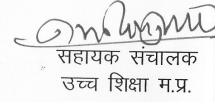 सहायक संचालक
उच्च शिक्षा म.प्र.